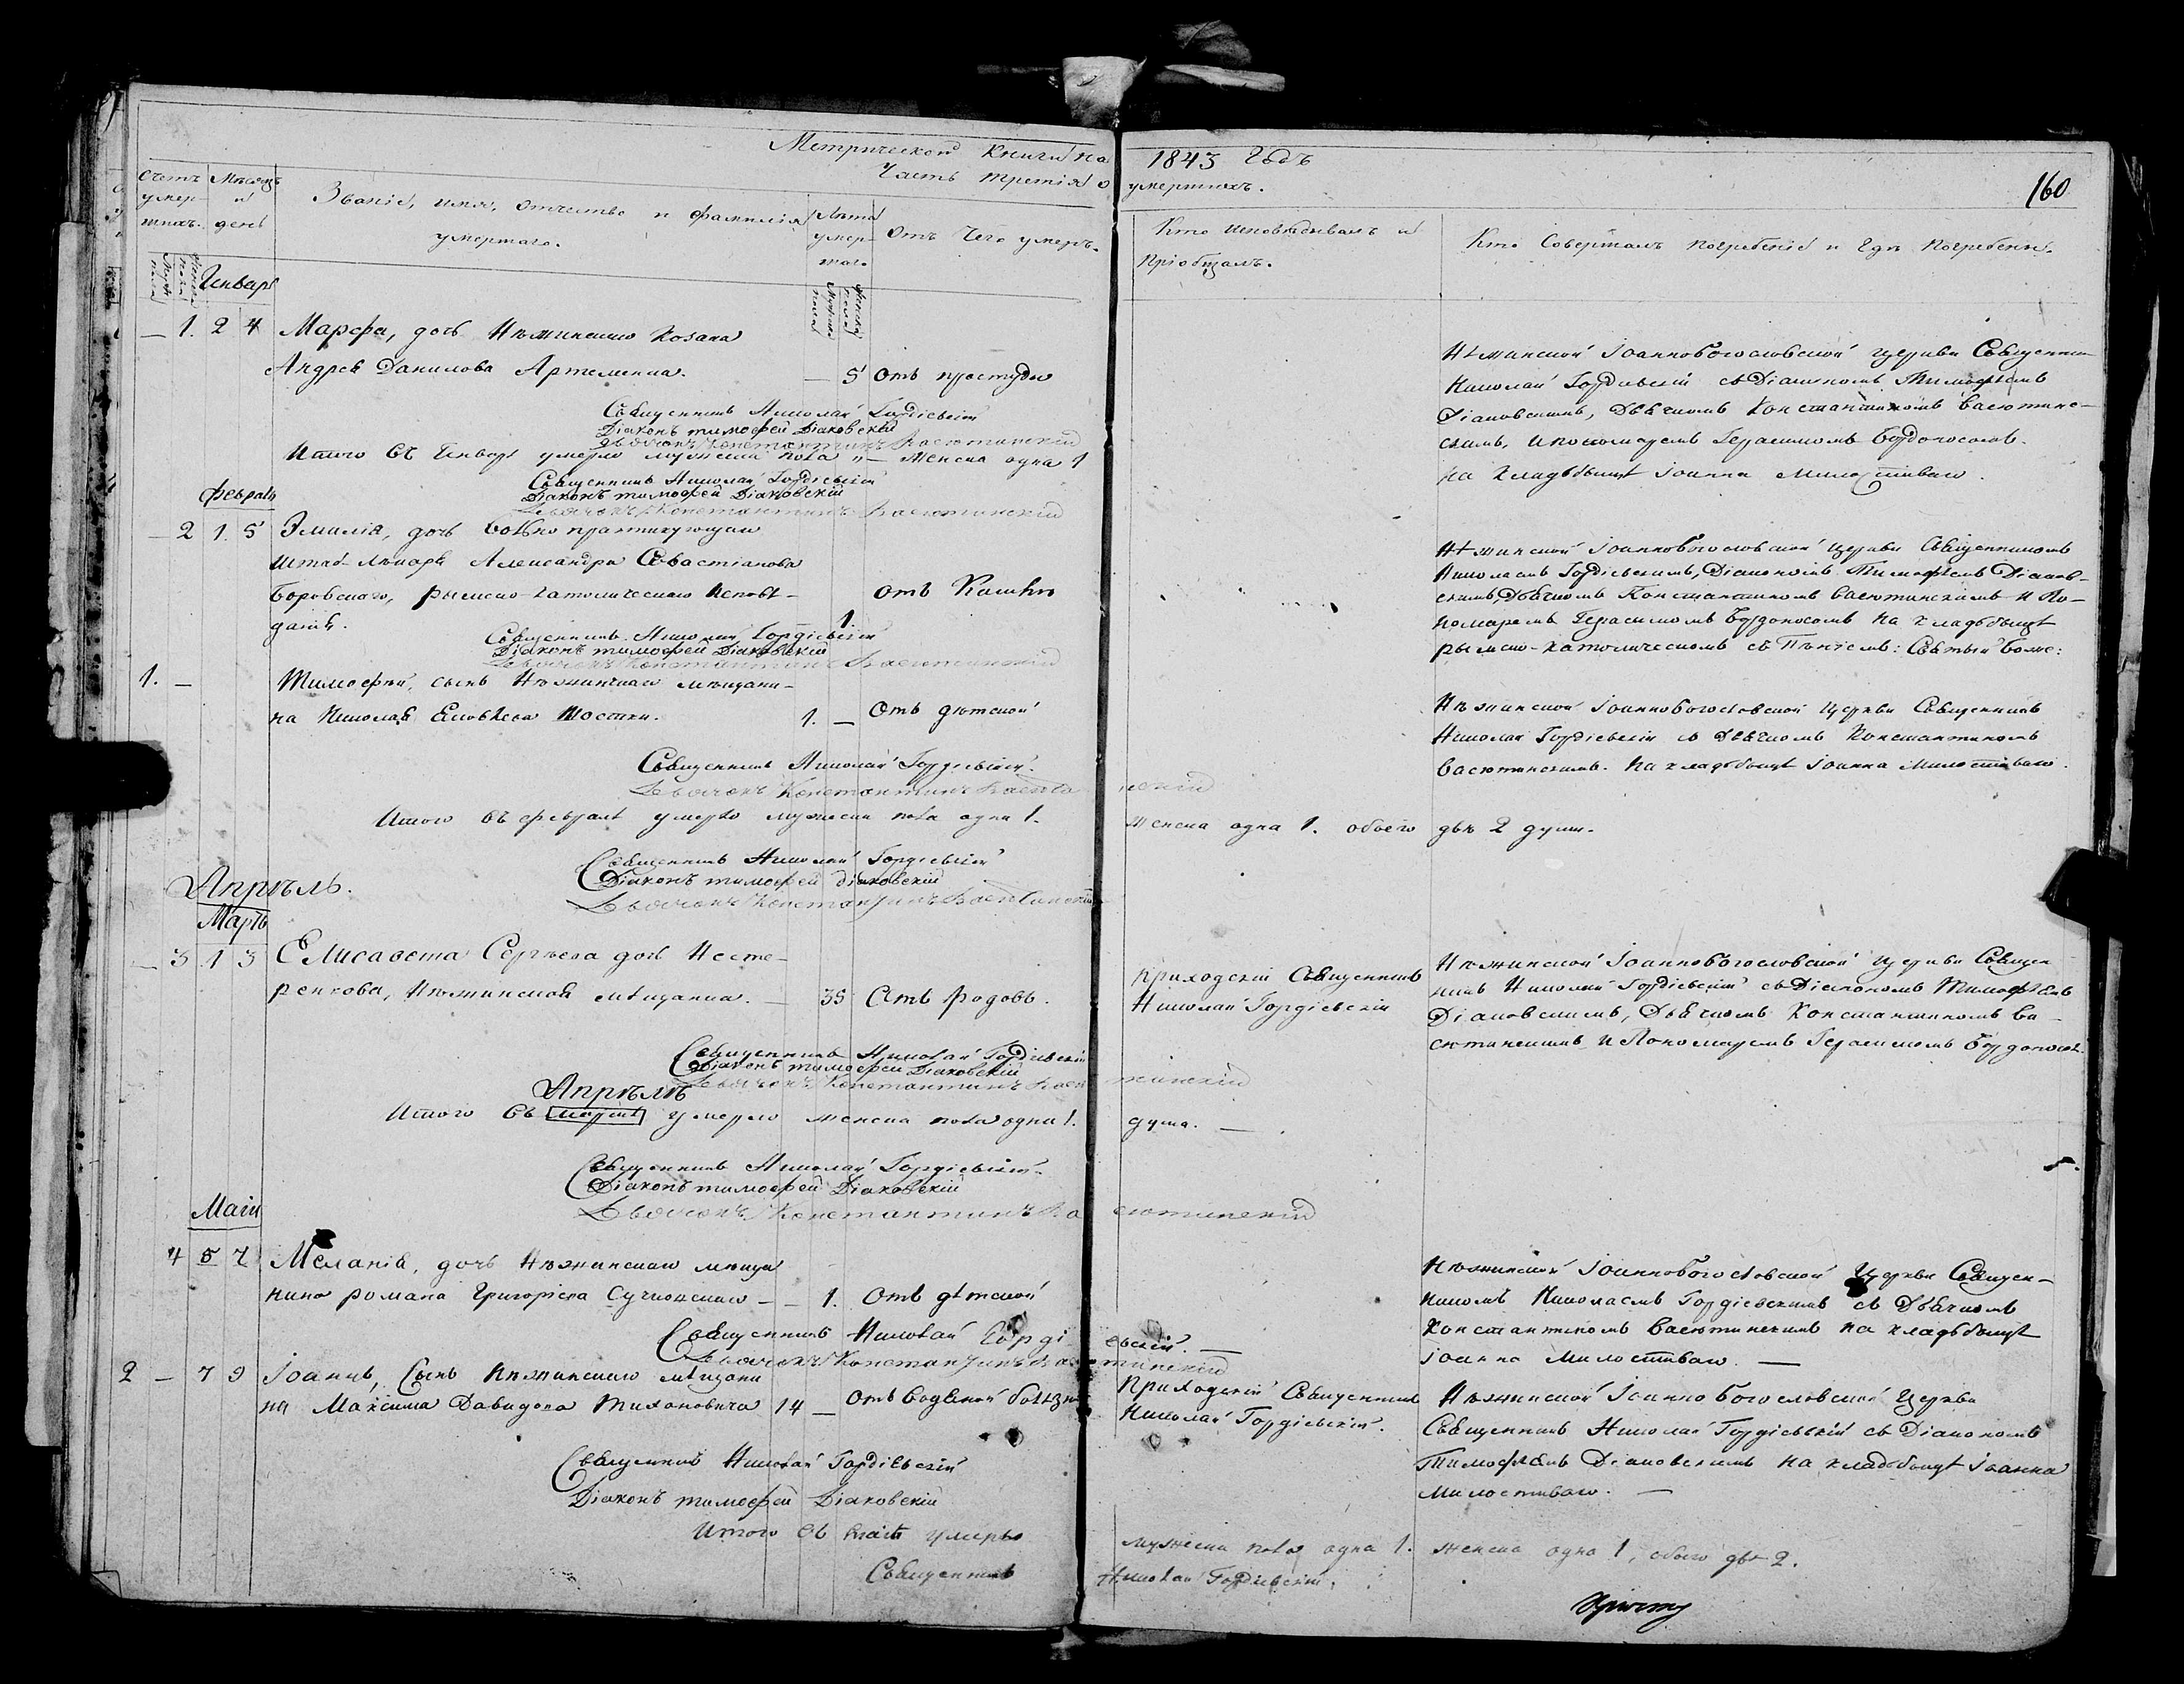 Метрической книги на 1843 годъ
Часть третія о умершихъ.
160
Счетъ умер- шихъ.
Мѣсяцъ и день
Званіе, имя, отчество и фамилія умершаго.
Лѣта умер- шаго
Отъ чего умеръ.
Кто исповѣдывалъ и пріобщалъ.
Кто совершалъ погребеніе и гдѣ погребены.
Мужеска пола
Женска пола
Январь
Мужеска пола
Женска пола
— 1. 2 4 Марфа, дочь Нѣжинскаго козака
Андрея Данилова Артеменка. — 5 Отъ простуды
Нѣжинской Іоаннобогословской церкви Священникъ
Николай Гордіевскій съ Діакономъ Тимофѣемъ
Діаковскимъ, Дьячкомъ Константиномъ Васютинс-
кимъ, и пономаремъ Герасимомъ Бордоносомъ.
на кладбищѣ Іоанна Милостиваго.
Священникъ Николай Гордіевскій
Діаконъ тимофей Діаковскій
Дьячокъ Константинъ Васютинскій
Итого въ Январѣ умерло мужеска пола „— женска одна 1
Священникъ Николай Гордіевскій
Діаконъ тимофей Діаковскій
Дьячокъ Константинъ Васютинскій
Февраль
— 2 1. 5 Эмилія, дочь вольно практикующаго
штаб-лѣкаря Александра Севастіанова
Боровскаго, рымско-католическаго исповѣ- отъ Кашлю
данія. 1.
Нѣжинской Іоаннобогословской церкви Священникомъ
Николаемъ Гордіевскимъ, Діакономъ Тимофѣемъ Діаков-
скимъ, Дьячкомъ Константиномъ Васютинскимъ и По-
номаремъ Герасимомъ Бордоносомъ на кладбищѣ
рымско-католическомъ съ Пѣніемъ: Святый Боже:
Священникъ Николай Гордіевскій
Діаконъ тимофей Діаковскій
Дьячокъ Константинъ Васютинскій
1. — Тимофѣй, сынъ Нѣжинскаго мѣщани-
на Николая Яковлева Шостки. 1. — Отъ дѣтской
Нѣжинской Іоаннобогословской Церкви Священникъ
Николай Гордіевскій съ Дьячкомъ Константиномъ
Васютинскимъ. На кладбищѣ Іоанна Милостиваго.
Священникъ Николай Гордіевскій.
Дьячокъ Константинъ Васютинскій
Итого въ февралѣ умерло мужеска пола одна 1. женска одна 1. обоего двѣ 2 души.
Священникъ Николай Гордіевскій
Діаконъ тимофей діаковскій
Дьячокъ Константинъ Васютинскій
Апрѣль.
Мартъ
— 3 1 3 Елисавета Сергѣева дочь Несте-
ренкова, Нѣжинская мѣщанка. — 35 Отъ родовъ.
приходскій Священникъ
Николай Гордіевскій
Нѣжинской Іоаннобогословской церкви Священ-
никъ Николай Гордіевскій съ Діакономъ Тимофѣемъ
Діаковскимъ, Дьячкомъ Константиномъ Ва-
сютинскимъ и Пономаремъ Герасимомъ Бордоносом.
Священникъ Николай Гордіевскій
Діаконъ тимофей Діаковскій
Дьячокъ Константинъ Васютинскій
Апрѣлѣ
Итого въ мартѣ умерло женска пола одна 1. душа. —
Священникъ Николай Гордіевскій.
Діаконъ тимофей Діаковскій
Дьячокъ Константинъ Васютинскій
Маій
4 5 7 Меланія, дочь Нѣжинскаго мѣща
нина Романа Григоріева — — 1. Отъ дѣтской
Нѣжинской Іоаннобогословской Церкви Священ-
никомъ Николаемъ Гордіевскимъ съ Дьячкомъ
Константиномъ Васютинскимъ на кладбищѣ
Іоанна Милостиваго. —
Священникъ Николай Гордіевскій. —
Дьячокъ Константинъ Васютинскій
2 — 7 9 Іоаннъ, Сынъ Нѣжинскаго мѣщани
на Максима Давидова Тихановича 14 — Отъ водяной болѣзни
Приходскій Священникъ
Николай Гордіевскій.
Нѣжинской Іоаннобогословской Церкви
Священникъ Николай Гордіевскій съ Діакономъ
Тимофѣемъ Діаковскимъ на кладбищѣ Іоанна
Милостиваго. —
Священникъ Николай Гордіевскій
Діаконъ тимофей Діаковскій
Итого въ маіѣ умерло мужеска пола одна 1. женска одна 1, обоего двѣ 2.
Священникъ Николай Гордіевскій.